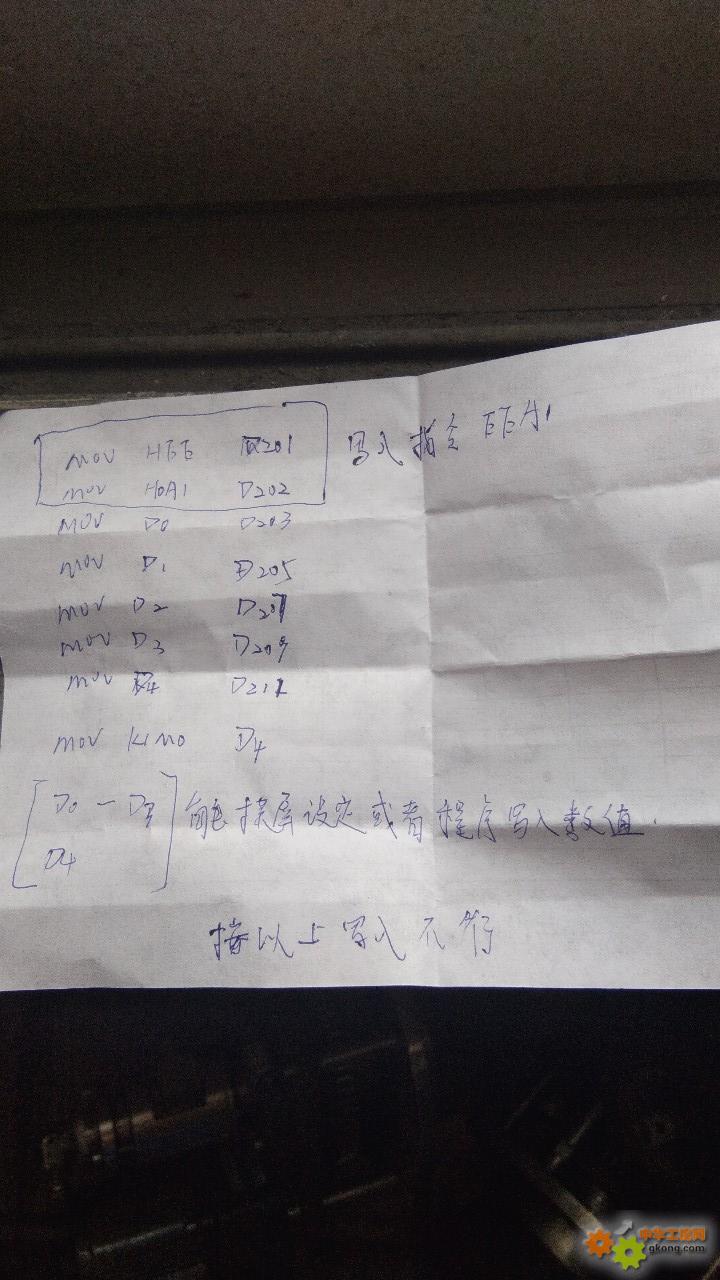 MOV HEE D201 写入指令 EEA1
MOV H0A1 D202
MOV D0 D203
MOV D1 D205
MOV D2 D207
MOV D3 D209
MOV D4 D211
MOV D4
D0 — D3 能接屏设定或者程序写入数值.
D4
按以上写入不行
中华工控网
gkong.com